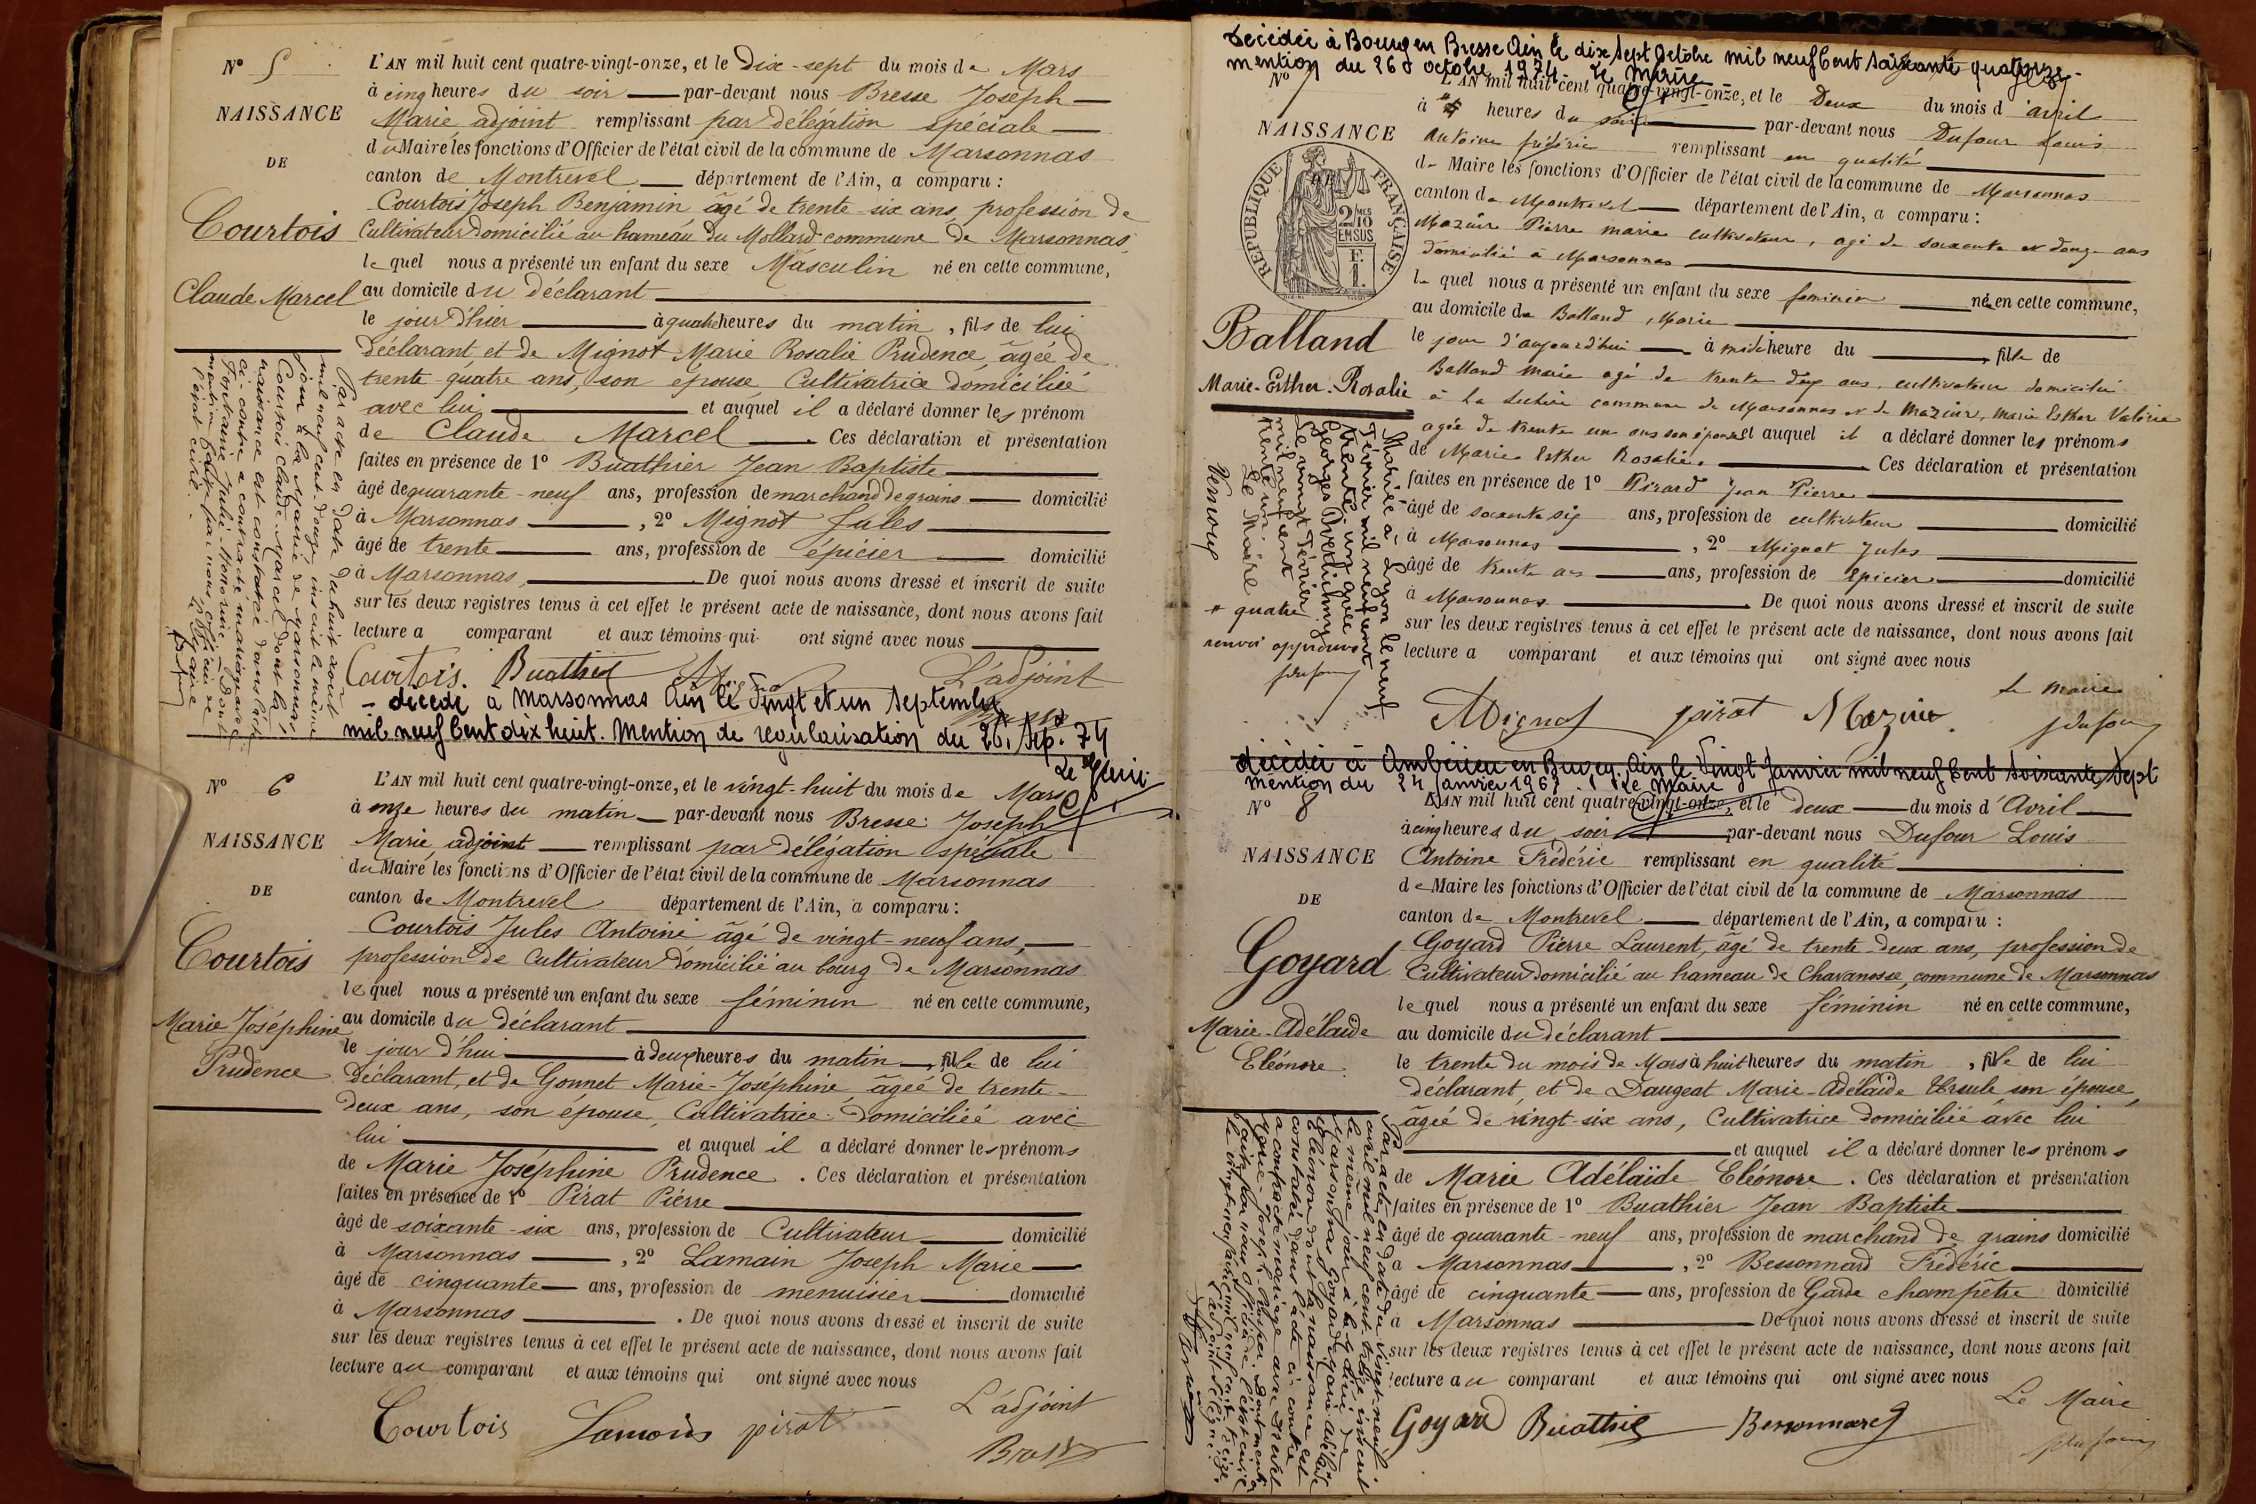 N° 5
NAISSANCE
DE
Courtois
Claude Marcel
L'AN mil huit cent quatre-vingt-onze, et le Dix-sept du mois de Mars
à cinq heures du soir par-devant nous Bresse Joseph
Marie adjoint remplissant par délégation spéciale
du Maire les fonctions d'Officier de l'état civil de la commune de Marsonnas
canton de Montrevel département de l'Ain, a comparu :
Courtois Joseph Benjamin âgé de trente-six ans, profession de
Cultivateur domicilié au hameau du Mollard commune de Marsonnas
lequel nous a présenté un enfant du sexe Masculin né en cette commune,
au domicile du déclarant
le jour d'hier à quatre heures du matin, fils de lui
déclarant et de Mignot Marie Rosalie Prudence, âgée de
trente-quatre ans, son épouse Cultivatrice domiciliée
avec lui et auquel il a déclaré donner les prénom
de Claude Marcel. Ces déclaration et présentation
faites en présence de 1° Buathier Jean Baptiste
âgé de quarante-neuf ans, profession de marchand de grains domicilié
à Marsonnas, 2° Mignot Jules
âgé de trente ans, profession de épicier domicilié
à Marsonnas, De quoi nous avons dressé et inscrit de suite
sur les deux registres tenus à cet effet le présent acte de naissance, dont nous avons fait
lecture a comparant et aux témoins qui ont signé avec nous
Courtois. Buathier L'adjoint
Par acte en date du huit août
mil neuf cent douze inscrit le même
jour à la Mairie de Marsonnas
Courtois Claude Marcel dont la
naissance est constatée dans l'acte
ci-contre a contracté mariage avec
Fontaine Julie Honorine. Dont
mention faite par nous officier de
l'état civil. Le Maire
- décédé à Marsonnas Ain le Vingt et un Septembre
mil neuf Cent dix huit. Mention de régularisation du 26 Sep. 74
N° 6
NAISSANCE
DE
Courtois
Marie Joséphine
Prudence
L'AN mil huit cent quatre-vingt-onze, et le vingt-huit du mois de Mars
à onze heures du matin par-devant nous Bresse Joseph
Marie adjoint remplissant par délégation spéciale
du Maire les fonctions d'Officier de l'état civil de la commune de Marsonnas
canton de Montrevel département de l'Ain, a comparu :
Courtois Jules Antoine âgé de vingt-neuf ans,
profession de Cultivateur domicilié au bourg de Marsonnas
lequel nous a présenté un enfant du sexe féminin né en cette commune,
au domicile du déclarant
le jour d'hui à deux heures du matin, fille de lui
déclarant, et de Gonnet Marie-Joséphine, âgée de trente-
deux ans, son épouse, Cultivatrice domiciliée avec
lui et auquel il a déclaré donner les prénoms
de Marie Joséphine Prudence. Ces déclaration et présentation
faites en présence de 1° Pérat Pierre
âgé de soixante-six ans, profession de Cultivateur domicilié
à Marsonnas, 2° Lamain Joseph Marie
âgé de cinquante ans, profession de menuisier domicilié
à Marsonnas. De quoi nous avons dressé et inscrit de suite
sur les deux registres tenus à cet effet le présent acte de naissance, dont nous avons fait
lecture au comparant et aux témoins qui ont signé avec nous
L'adjoint
Courtois pirat
décédée à Bourg en Bresse Ain le dix Sept Octobre mil neuf Cent Soixante quatorze.
mention du 26 octobre 1974. Le Maire
N° 7
NAISSANCE
REPUBLIQUE FRANÇAISE
2/10 MES
EN SUS
F.
1.
Balland
Marie-Esther-Rosalie
L'AN mil huit cent quatre-vingt-onze, et le Deux du mois d'avril
à * heures du soir par-devant nous Dufour Louis
Antoine frédéric remplissant en qualité
de Maire les fonctions d'Officier de l'état civil de la commune de Marsonnas
canton de Montrevel département de l'Ain, a comparu :
Mazuir Pierre marie cultivateur, agé de soixante et douze ans
domicilié à Marsonnas
lequel nous a présenté un enfant du sexe feminin né en cette commune,
au domicile de Balland Marie
le jour d'aujourd'hui à midi heure du, fille de
Balland Marie agé de trente deux ans, cultivateur domicilié
à la commune de Marsonnas et de Mazuir, Marie Esther Valérie
agée de trente un ans son épouse et auquel il a déclaré donner les prénoms
de Marie Esther Rosalie. Ces déclaration et présentation
faites en présence de 1° Pirard Jean Pierre
âgé de soixante six ans, profession de cultivateur domicilié
à Marsonnas, 2° Mignot Jules
âgé de trente ans ans, profession de Epicier domicilié
à Marsonnas De quoi nous avons dressé et inscrit de suite
sur les deux registres tenus à cet effet le présent acte de naissance, dont nous avons fait
lecture a comparant et aux témoins qui ont signé avec nous
Le maire
Mignot pirat Mazuir
Mariée à Lyon le neuf
février mil neuf cent
trente un avec
Georges
Le vingt février
mil neuf cent
trente un
Le Maire
* quatre
renvoi approuvé
décédée à Ambérieu en Bugey Ain le Vingt Janvier mil neuf Cent Soixante Sept
Mention du 24 Janvier 1967. Le Maire
N° 8
NAISSANCE
DE
Goyard
Marie-Adélaïde
Eléonore
L'AN mil huit cent quatre-vingt-onze, et le deux du mois d'Avril
à cinq heures du soir par-devant nous Dufour Louis
Antoine Frédéric remplissant en qualité
de Maire les fonctions d'Officier de l'état civil de la commune de Marsonnas
canton de Montrevel département de l'Ain, a comparu :
Goyard Pierre Laurent, âgé de trente-deux ans, profession de
Cultivateur domicilié au hameau de Chavanosse, commune de Marsonnas
lequel nous a présenté un enfant du sexe féminin né en cette commune,
au domicile du déclarant
le trente du mois de Mars à huit heures du matin, fille de lui
déclarant, et de Daugeat Marie-Adélaïde Ursule son épouse,
âgée de vingt-six ans, Cultivatrice domiciliée avec lui
et auquel il a déclaré donner les prénoms
de Marie Adélaïde Eléonore. Ces déclaration et présentation
faites en présence de 1° Buathier Jean Baptiste
âgé de quarante-neuf ans, profession de marchand de grains domicilié
à Marsonnas, 2° Bessonnard Frédéric
âgé de cinquante ans, profession de Garde champêtre domicilié
à Marsonnas De quoi nous avons dressé et inscrit de suite
sur les deux registres tenus à cet effet le présent acte de naissance, dont nous avons fait
lecture au comparant et aux témoins qui ont signé avec nous
Le Maire
Goyard Buathier Bessonnard
Par acte en date du vingt-neuf
avril mil neuf cent treize inscrit
le même jour à la Mairie de
Marsonnas Goyard Marie Adélaïde
Eléonore dont la naissance est
constatée dans l'acte ci-contre
a contracté mariage avec
Marie-Joseph. Dont mention
faite par nous officier de l'état civil